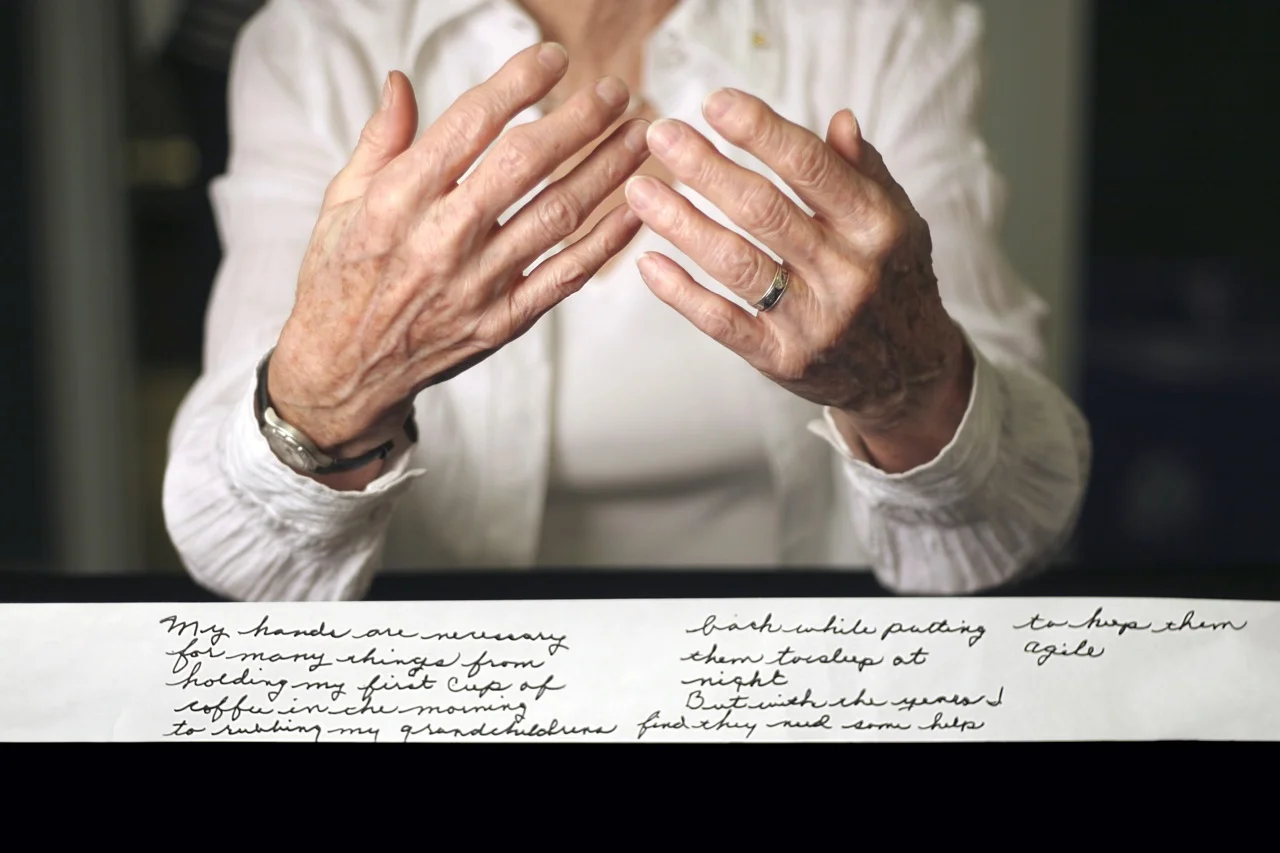 My hands are necessary
for many things from
holding my first cup of
coffee in the morning
to rubbing my grandchildrens
back while putting
them to sleep at
night
But with the years I
find they need some help
to keep them
agile